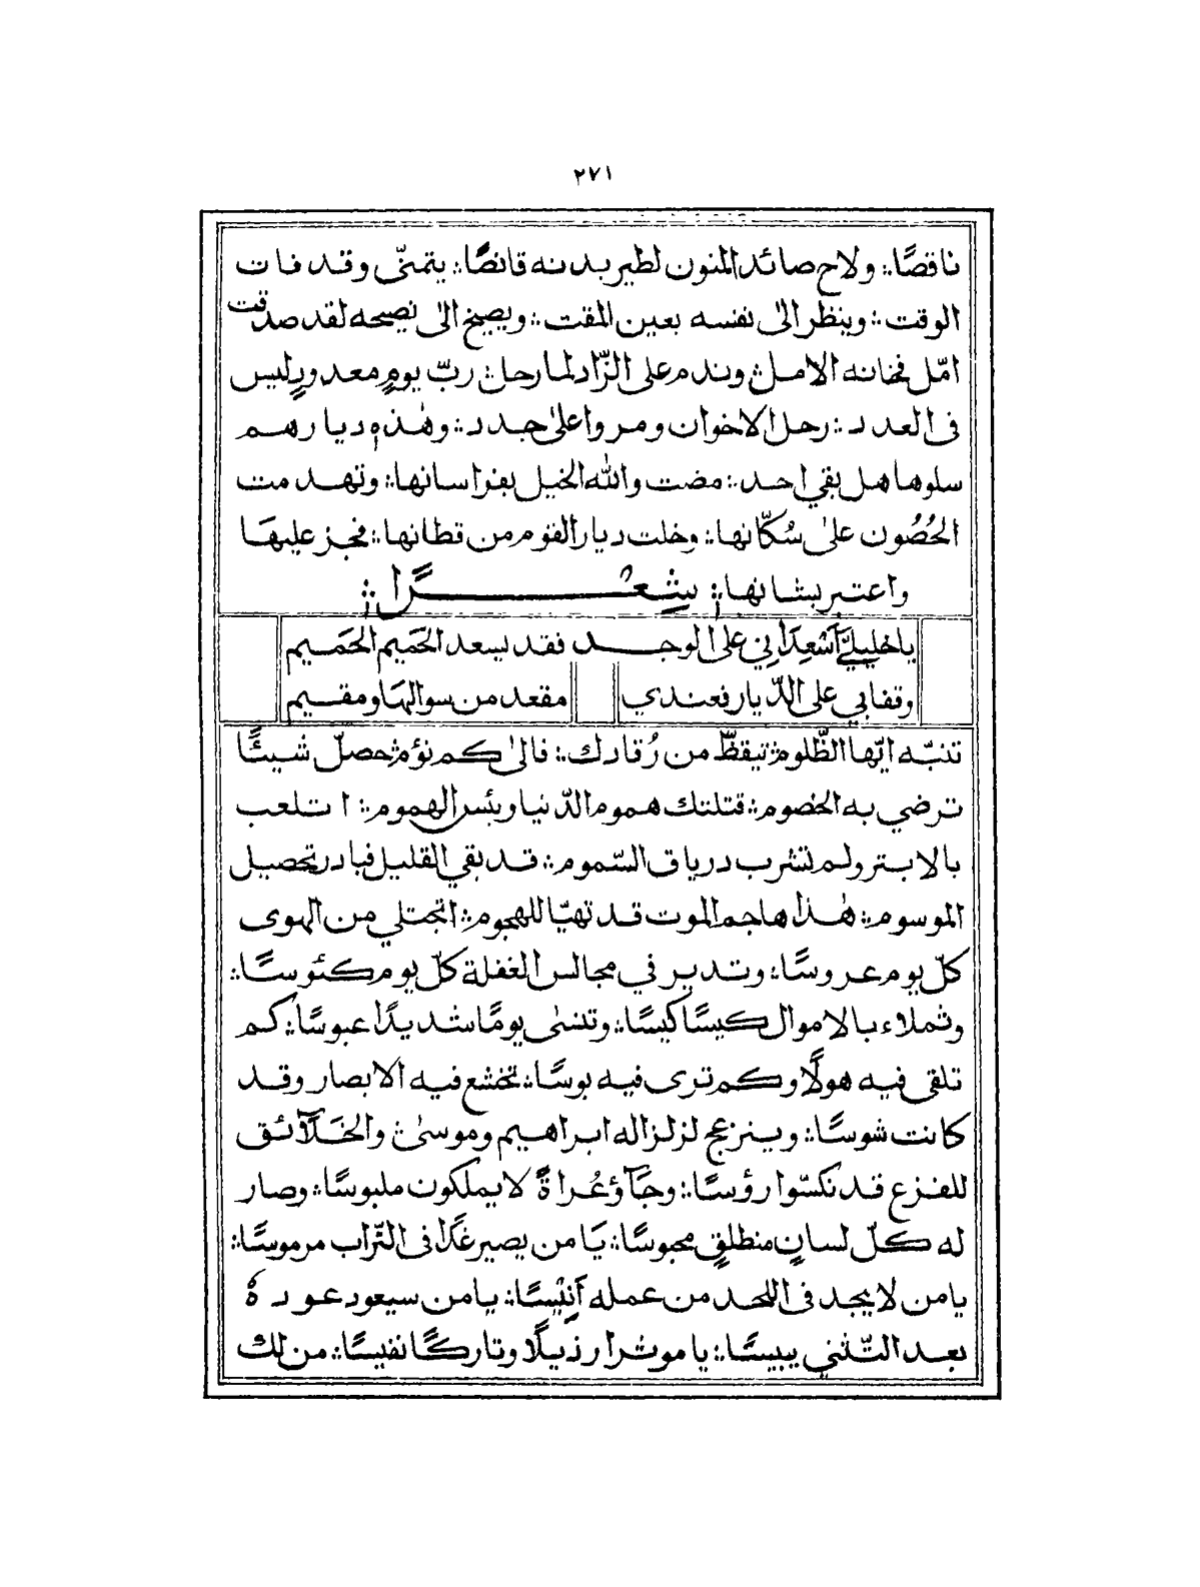 ٢٧١
ناقصًا ؞ ولاح صائد المنون لطير بدنه قانصًا ؞ يتمنّى وقد فات
الوقت ؞ وينظر الى نفسه بعين المقت ؞ ويصيخ الى نصيحه لقد صدقت
امّل فخانه الامل ؞ وندم على الزّاد لما رحل ؞ ربّ يومٍ معدودٍ ليس
فى العدد ؞ رحل الاخوان ومروا على جدد ؞ وهٰذه ديارهم
سلوها هل بقي احد ؞ مضت والله الخيل بفراسانها ؞ وتهدمت
الحُصُون على سُكّانها ؞ وخلت ديار القوم من قطانها ؞ فجز عليها
واعتبر بشانها ؞ شِعْرًا ؞
يا خليليَّ أَسْعِدَاني على الوجد فقد يسعد الحَميم الحَميم
وقفا بي على الدّيار فعندي مقعد من سوالهَا ومقيم
تنبّه ايّها الظّلوم ؞ تيقظّ من رُقادك ؞ فالى كم نؤم ؞ حصلّ شيئًا
ترضي به الخصوم ؞ قتلتك هموم الدّنيا وبئس الهموم ؞ اتلعب
بالابتر ولم تشرب درياق السّموم ؞ قد بقي القليل فبادر تحصيل
الموسوم ؞ هٰذا هاجم الموت قد تهيّا للهجوم ؞ اتجتلي من الهوى
كلّ يوم عروسًا ؞ وتدير في مجالس الغفلة كلّ يوم كئوسًا ؞
وتملاء بالاموال كيسًا كيسًا ؞ وتنسٰى يومًا شديدًا عبوسًا ؞ كم
تلقى فيه هولًا وكم ترى فيه بوسًا ؞ تخشع فيه الابصار وقد
كانت شوسًا ؞ وينزعج لزلزاله ابراهيم وموسىٰ ؞ والخَلَآئق
للفزع قد نكسّوا رؤسًا ؞ وجَآؤعُراةً لا يملكون ملبوسًا ؞ وصار
له كلّ لسانٍ منطلقٍ محبوسًا ؞ يَا من يصير غدًا فى التّراب مرموسًا ؞
يا من لا يجد فى اللحد من عمله أَنِيْسًا ؞ يا من سيعود عوده
بعد التّثني يبيسًا ؞ يا موثرا رذيلًا وتاركًا نفيسًا ؞ من لك